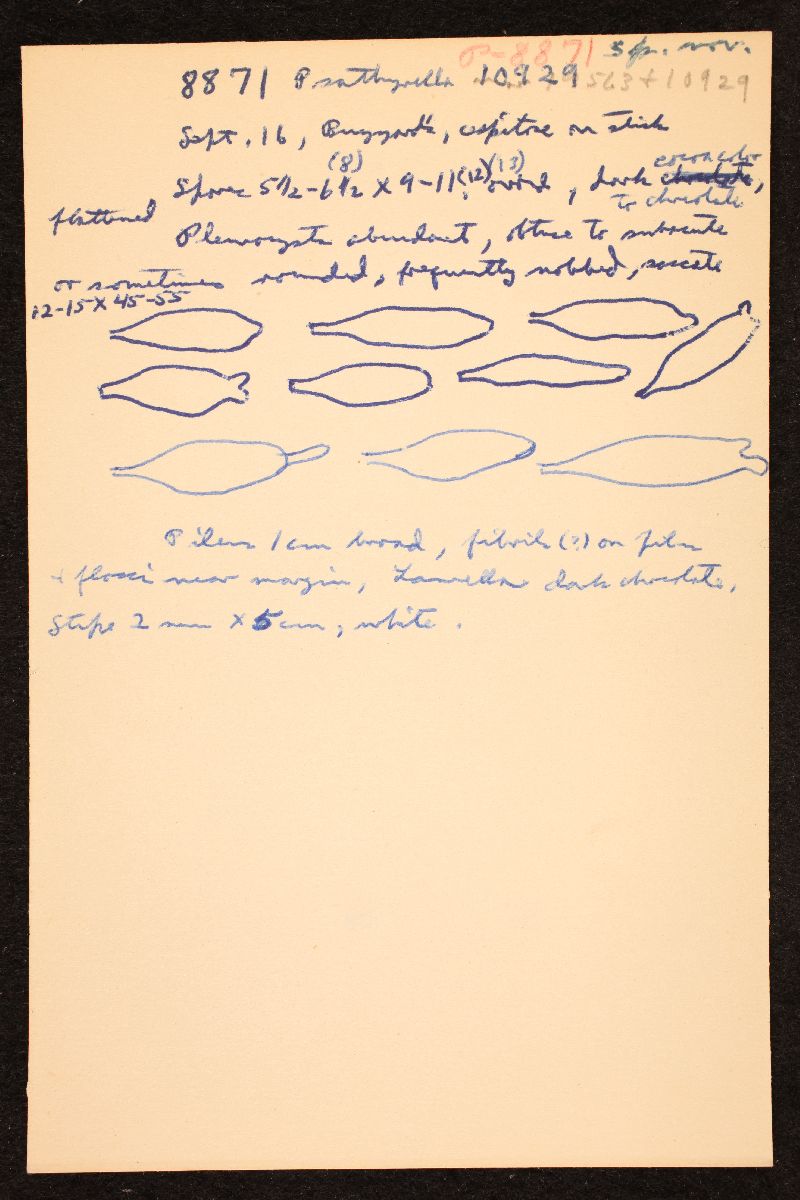 P-8871 sp. nov.
8871 Psathyrella 10929 563 + 10929
Sept. 16, Buzzard's, cespitose on stick
(8) (12) (13) cocoa color
Spores 5 1/2-6 1/2 x 9-11 ovoid, dark chocolate,
flattened to chocolate
Pleurocysts abundant, obtuse to subacute
or sometimes rounded, frequently nobbed, saccate
12-15 x 45-55
Pileus 1 cm broad, fibrils (?) on film
+ flocci near margin, Lamellae dark chocolate,
Stipe 2 mm x 5 cm, white.